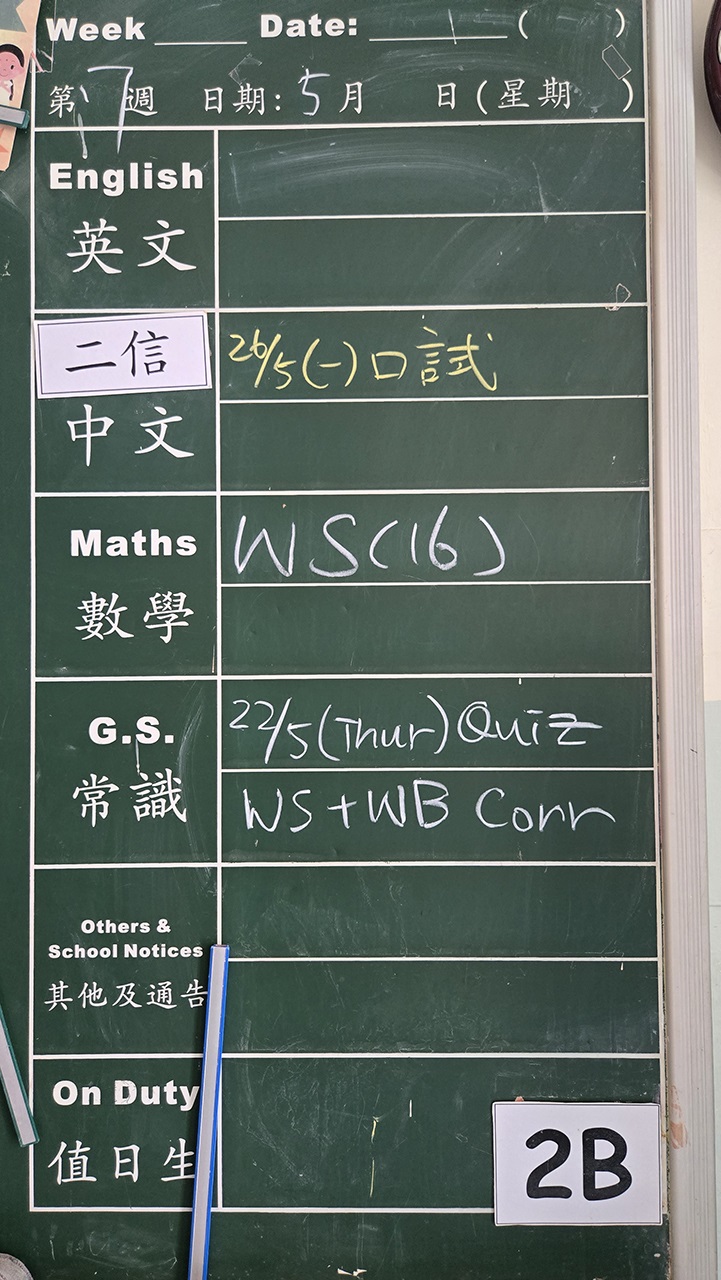 Week ______ Date: _________ ( )
第17週 日期: 5月 日(星期 )
English
英文
二信 26/5(一)口試
中文
Maths WS(16)
數學
G.S. 22/5(Thur) Quiz
常識 WS+WB Corr
Others &
School Notices
其他及通告
On Duty
值日生
2B